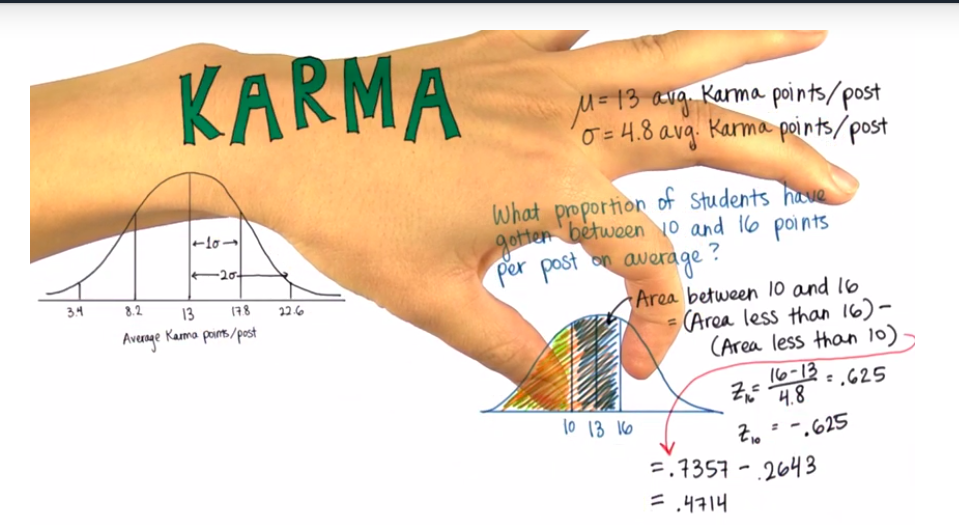 KARMA
μ = 13 avg. Karma points/post
σ = 4.8 avg. Karma points/post
←1σ→
←2σ→
3.4 8.2 13 17.8 22.6
Average Karma points/post
What proportion of students have
gotten between 10 and 16 points
per post on average?
Area between 10 and 16
= (Area less than 16) −
(Area less than 10)
10 13 16
Z₁₆ = 16-13 / 4.8 = .625
Z₁₀ = -.625
= .7357 - .2643
= .4714